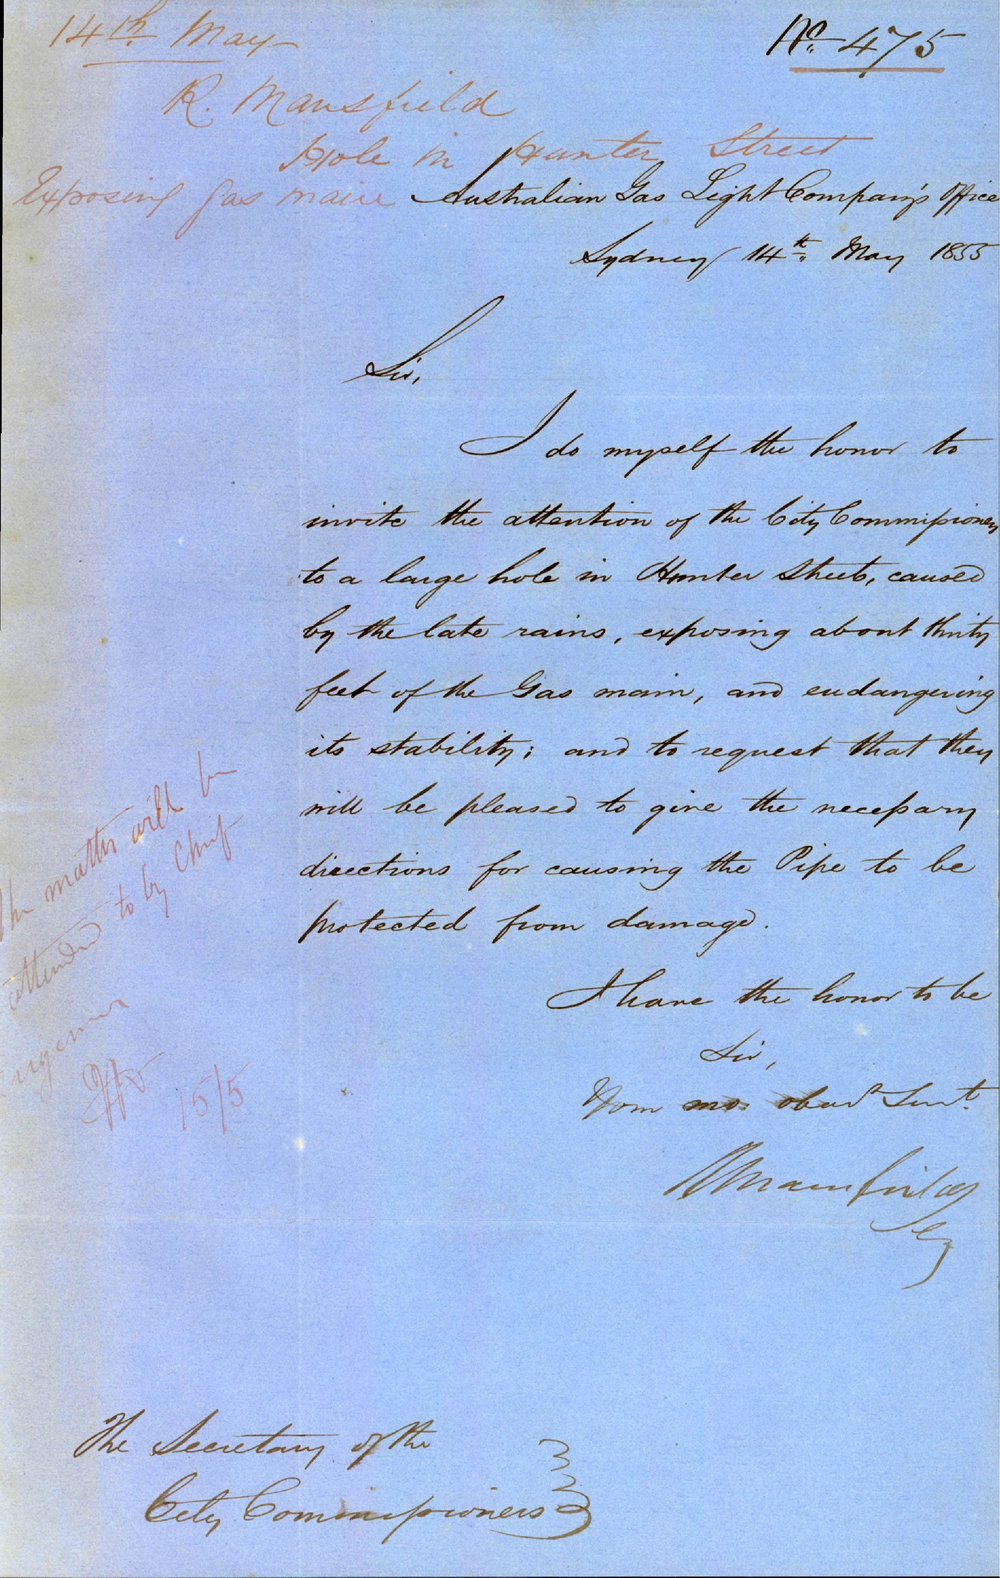 14th May
No. 475
R. Mansfield
Hole in Hunter Street
Exposing gas main
Australian Gas Light Company's Office
Sydney 14th May 1855
Sir,
I do myself the honor to
invite the attention of the City Commissioners
to a large hole in Hunter Street, caused
by the late rains, exposing about thirty
feet of the Gas main, and endangering
its stability; and to request that they
will be pleased to give the necessary
directions for causing the Pipe to be
protected from damage.
I have the honor to be
Sir,
Your mo. obedt Servt.
R Mansfield
Secy
The matter will be
attended to by Chief
Engineer
15/5
The Secretary of the
City Commissioners